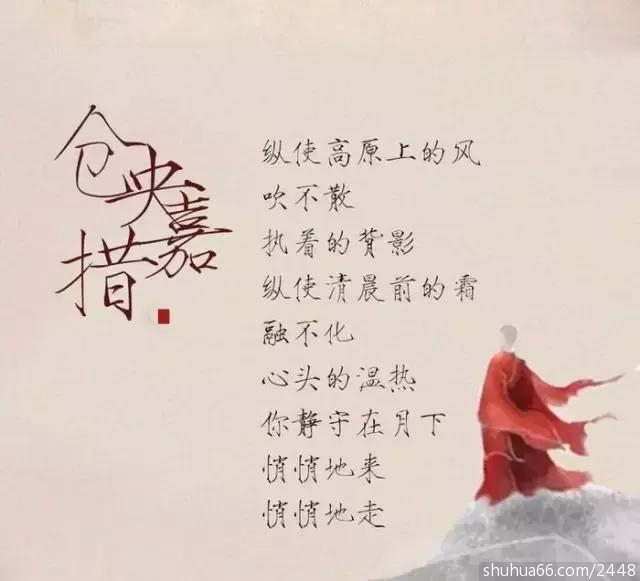 仓央嘉措
纵使高原上的风
吹不散
执着的背影
纵使清晨前的霜
融不化
心头的温热
你静守在月下
悄悄地来
悄悄地走
shuhua66.com/2448